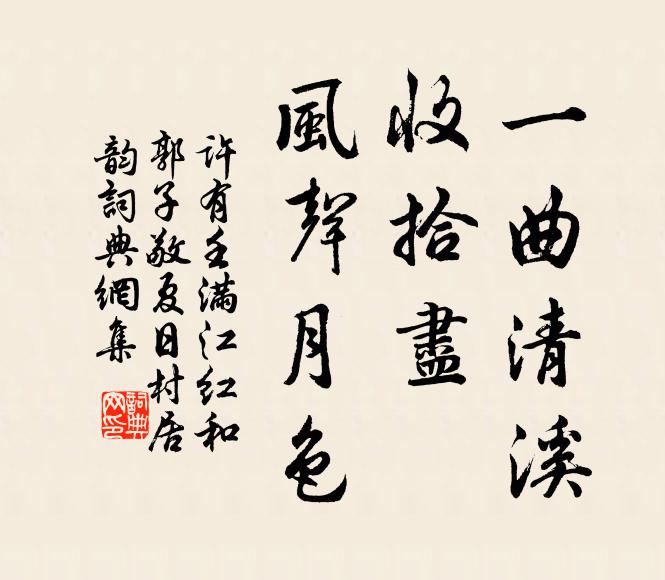 一曲清溪
收拾盡
風聲月色
許有壬滿江紅和
郭子敬夏日村居
韵詞典網集
詞典網印